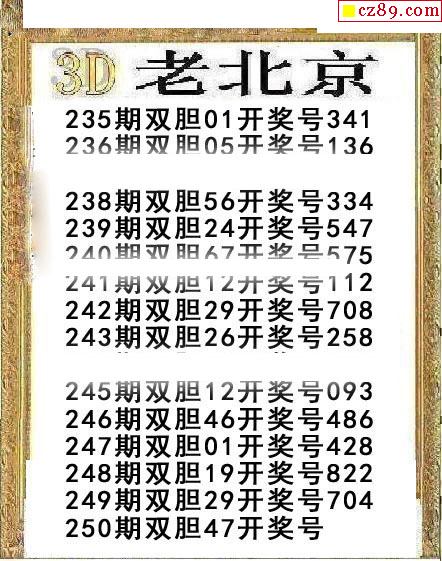 cz89.com
3D 老北京
235期双胆01开奖号341
236期双胆05开奖号136
238期双胆56开奖号334
239期双胆24开奖号547
240期双胆67开奖号575
241期双胆12开奖号112
242期双胆29开奖号708
243期双胆26开奖号258
245期双胆12开奖号093
246期双胆46开奖号486
247期双胆01开奖号428
248期双胆19开奖号822
249期双胆29开奖号704
250期双胆47开奖号